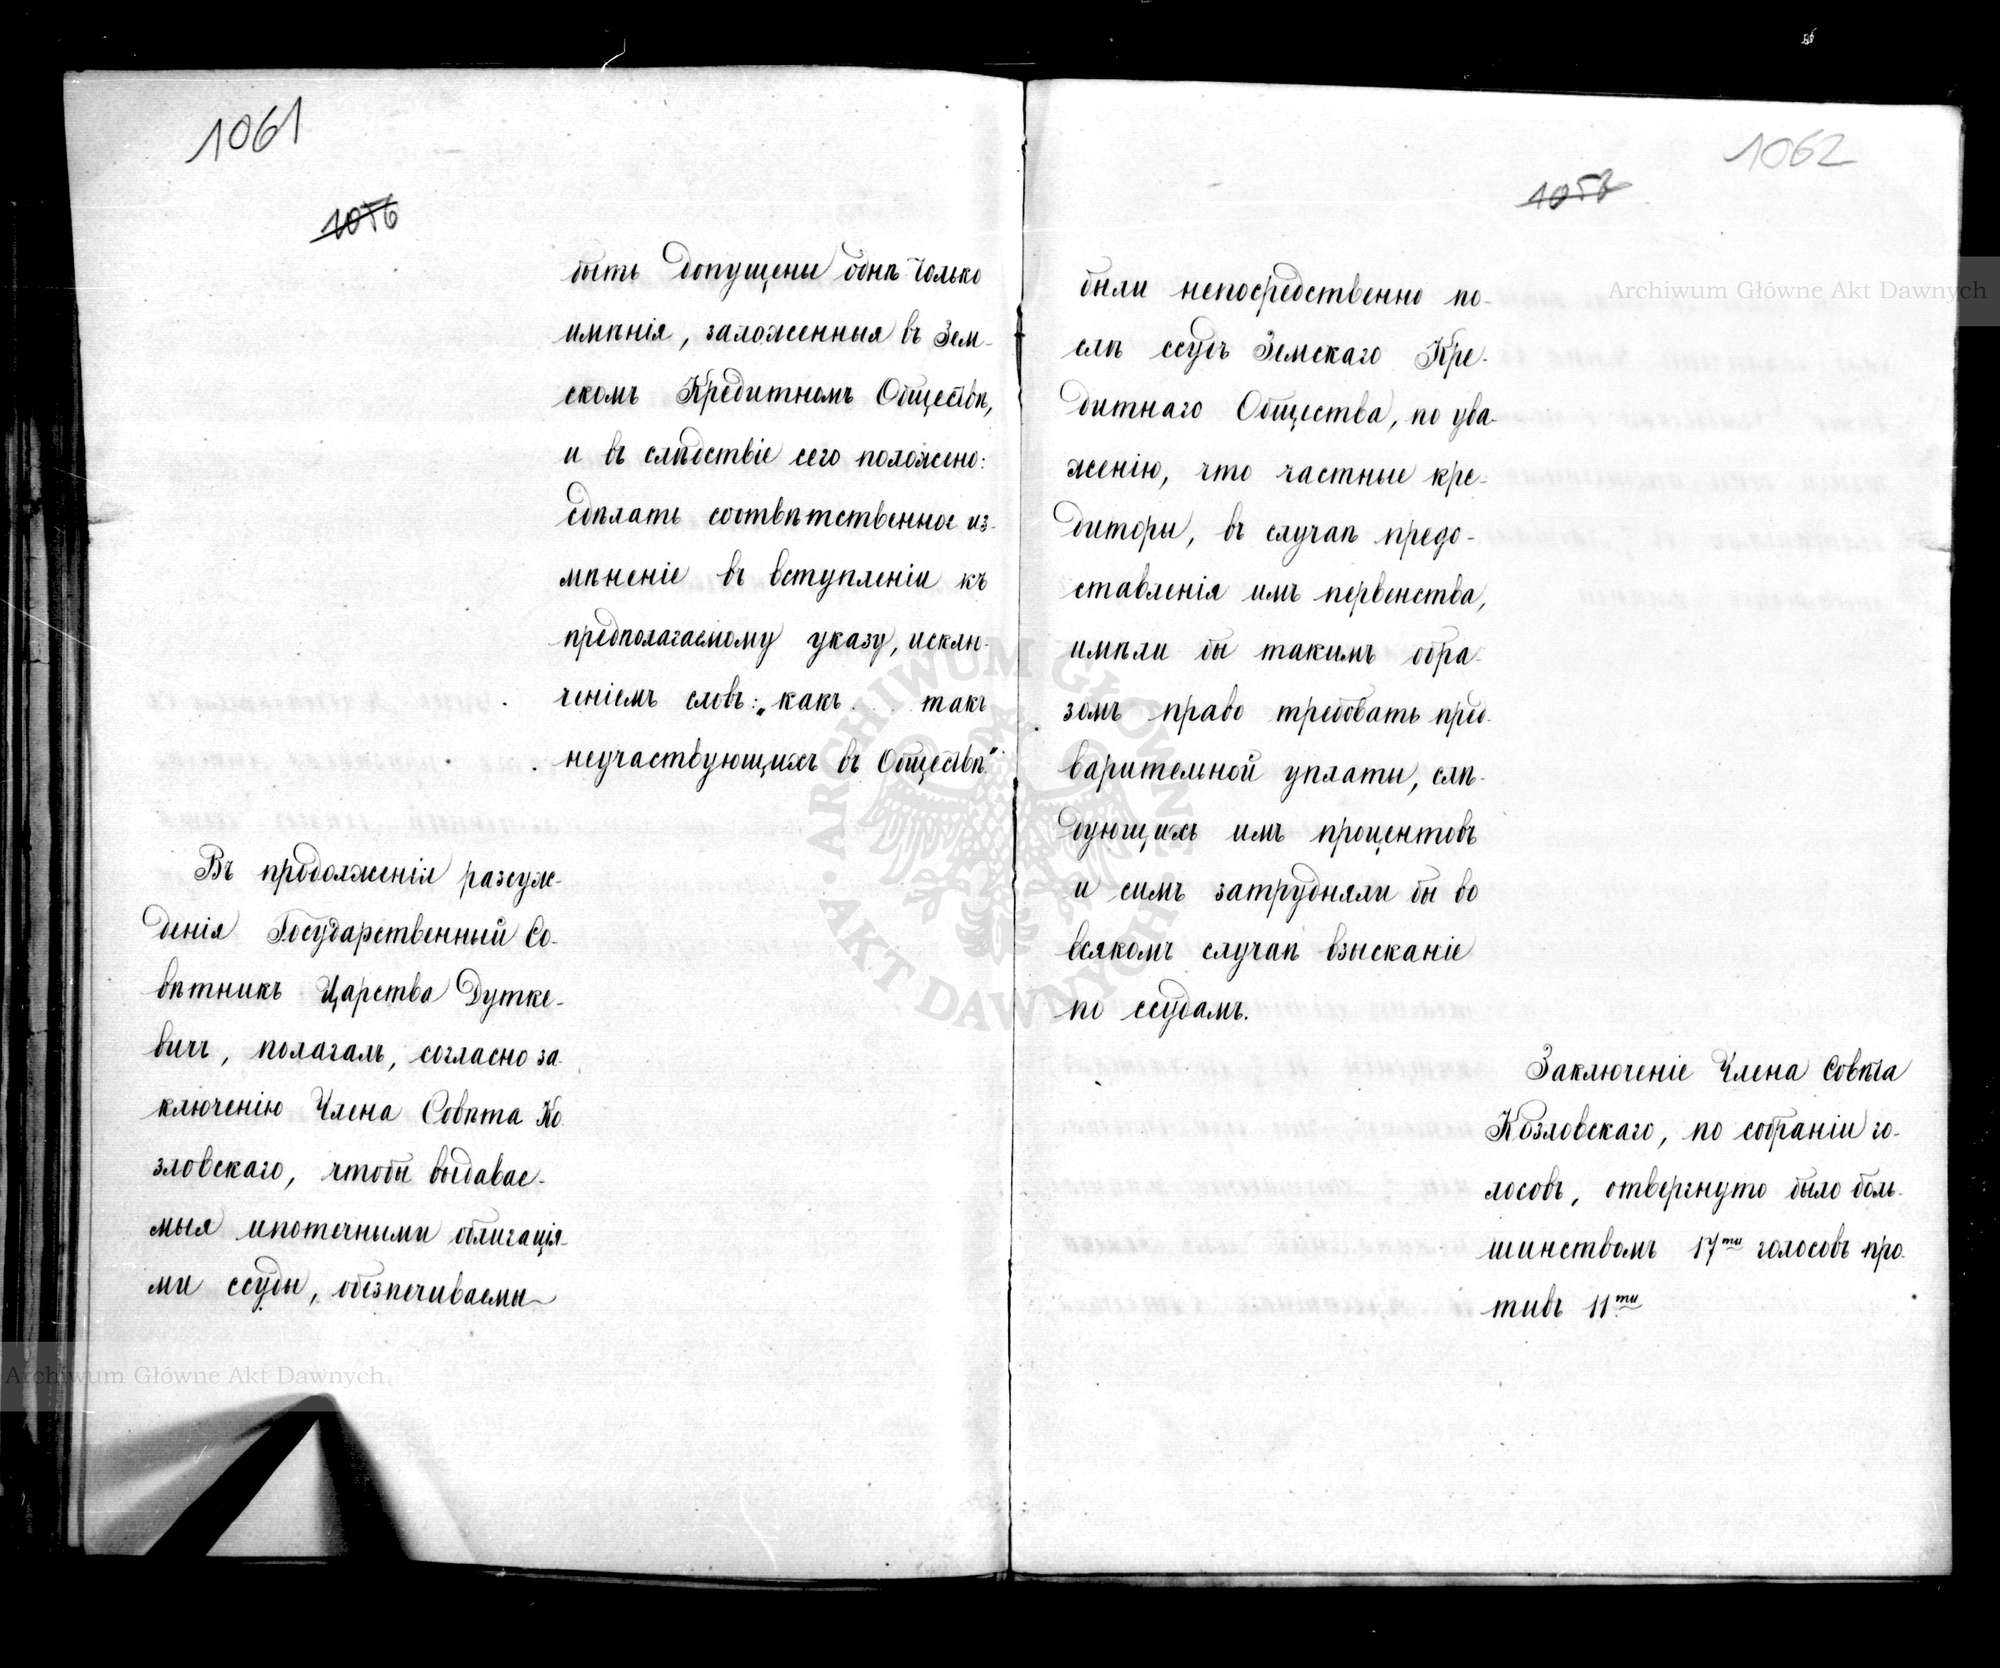 1061
1056
быть допущены однѣ только
имѣнія, заложенныя въ Зем-
скомъ Кредитномъ Обществѣ,
и въ слѣдствіе сего положено:
сдѣлать соотвѣтственное из-
мѣненіе въ вступленіи къ
предполагаемому указу, исклю-
ченіемъ словъ: „какъ . . . такъ
неучаствующихъ въ Обществѣ"
Въ продолженіи разсуж-
денія Государственный Со-
вѣтникъ Царства Дутке-
вичъ, полагалъ, согласно за-
ключенію Члена Совѣта Ко-
зловскаго, чтобы выдавае-
мыя ипотечными облигація-
ми ссуды, обезпечиваемы
1062
1058
были непосредственно по-
слѣ ссудъ Земскаго Кре-
дитнаго Общества, по ува-
женію, что частные кре-
диторы, въ случаѣ предо-
ставленія имъ первенства,
имѣли бы такимъ обра-
зомъ право требовать пред-
варительной уплаты, слѣ-
дующихъ имъ процентовъ
и симъ затрудняли бы во
всякомъ случаѣ взысканіе
по ссудамъ.
Заключеніе Члена Совѣта
Козловскаго, по собраніи го-
лосовъ, отвергнуто было боль-
шинствомъ 17ти голосовъ про-
тивъ 11ти
Archiwum Główne Akt Dawnych
Archiwum Główne Akt Dawnych
ARCHIWUM GŁÓWNE · AKT DAWNYCH ·